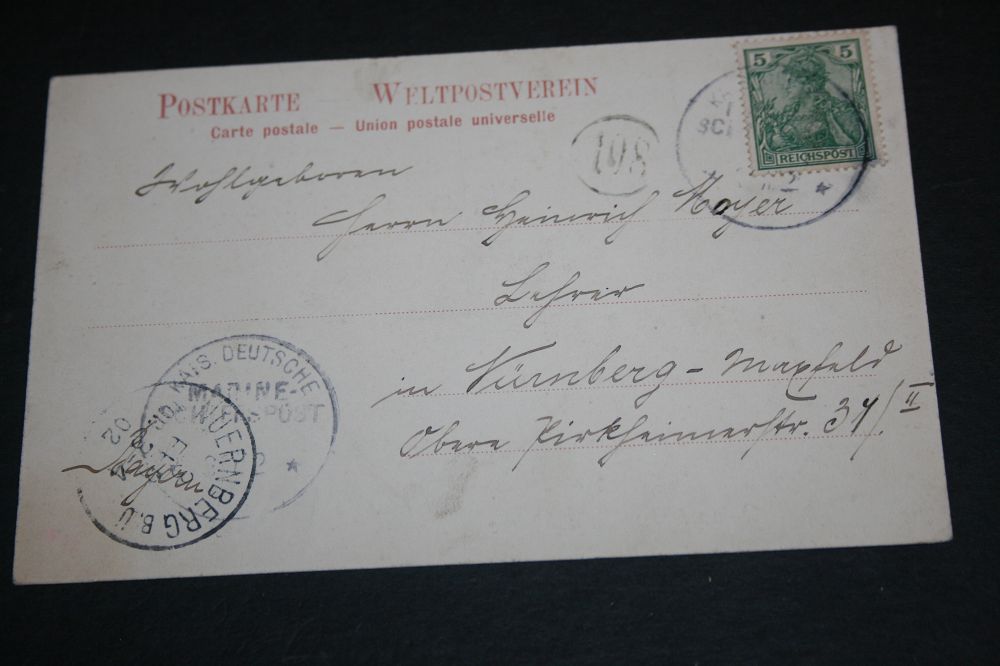 POSTKARTE — WELTPOSTVEREIN
Carte postale — Union postale universelle
5 5
REICHSPOST
Wohlgeboren
Herrn Heinrich Mayer
Lehrer
in Nürnberg-Maxfeld
Obere Pirkheimerstr. 34/II.
Bayern
KAIS. DEUTSCHE
MARINE-
SCHIFFSPOST
NUERNBERG B.Ü
02